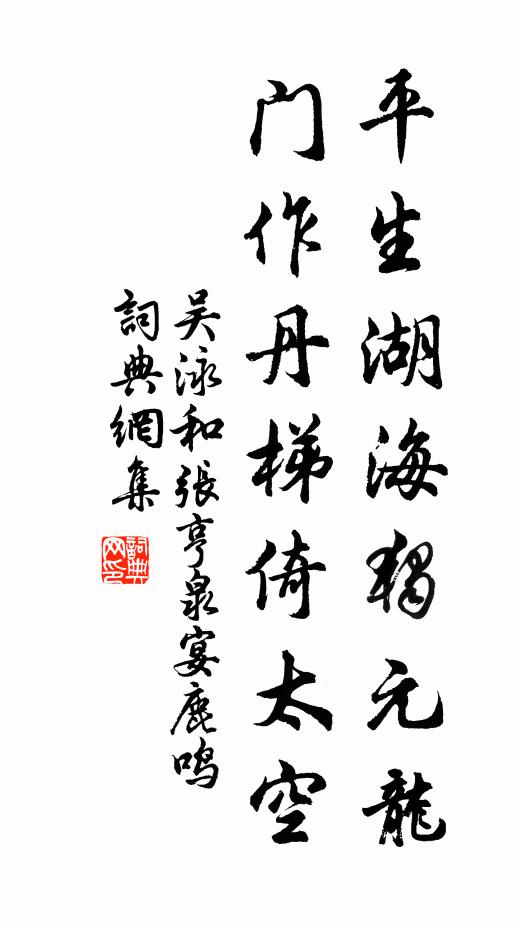 平生湖海獨元龍
門作丹梯倚太空
吴泳和張亨泉宴鹿鳴
詞典網集
詞典网印